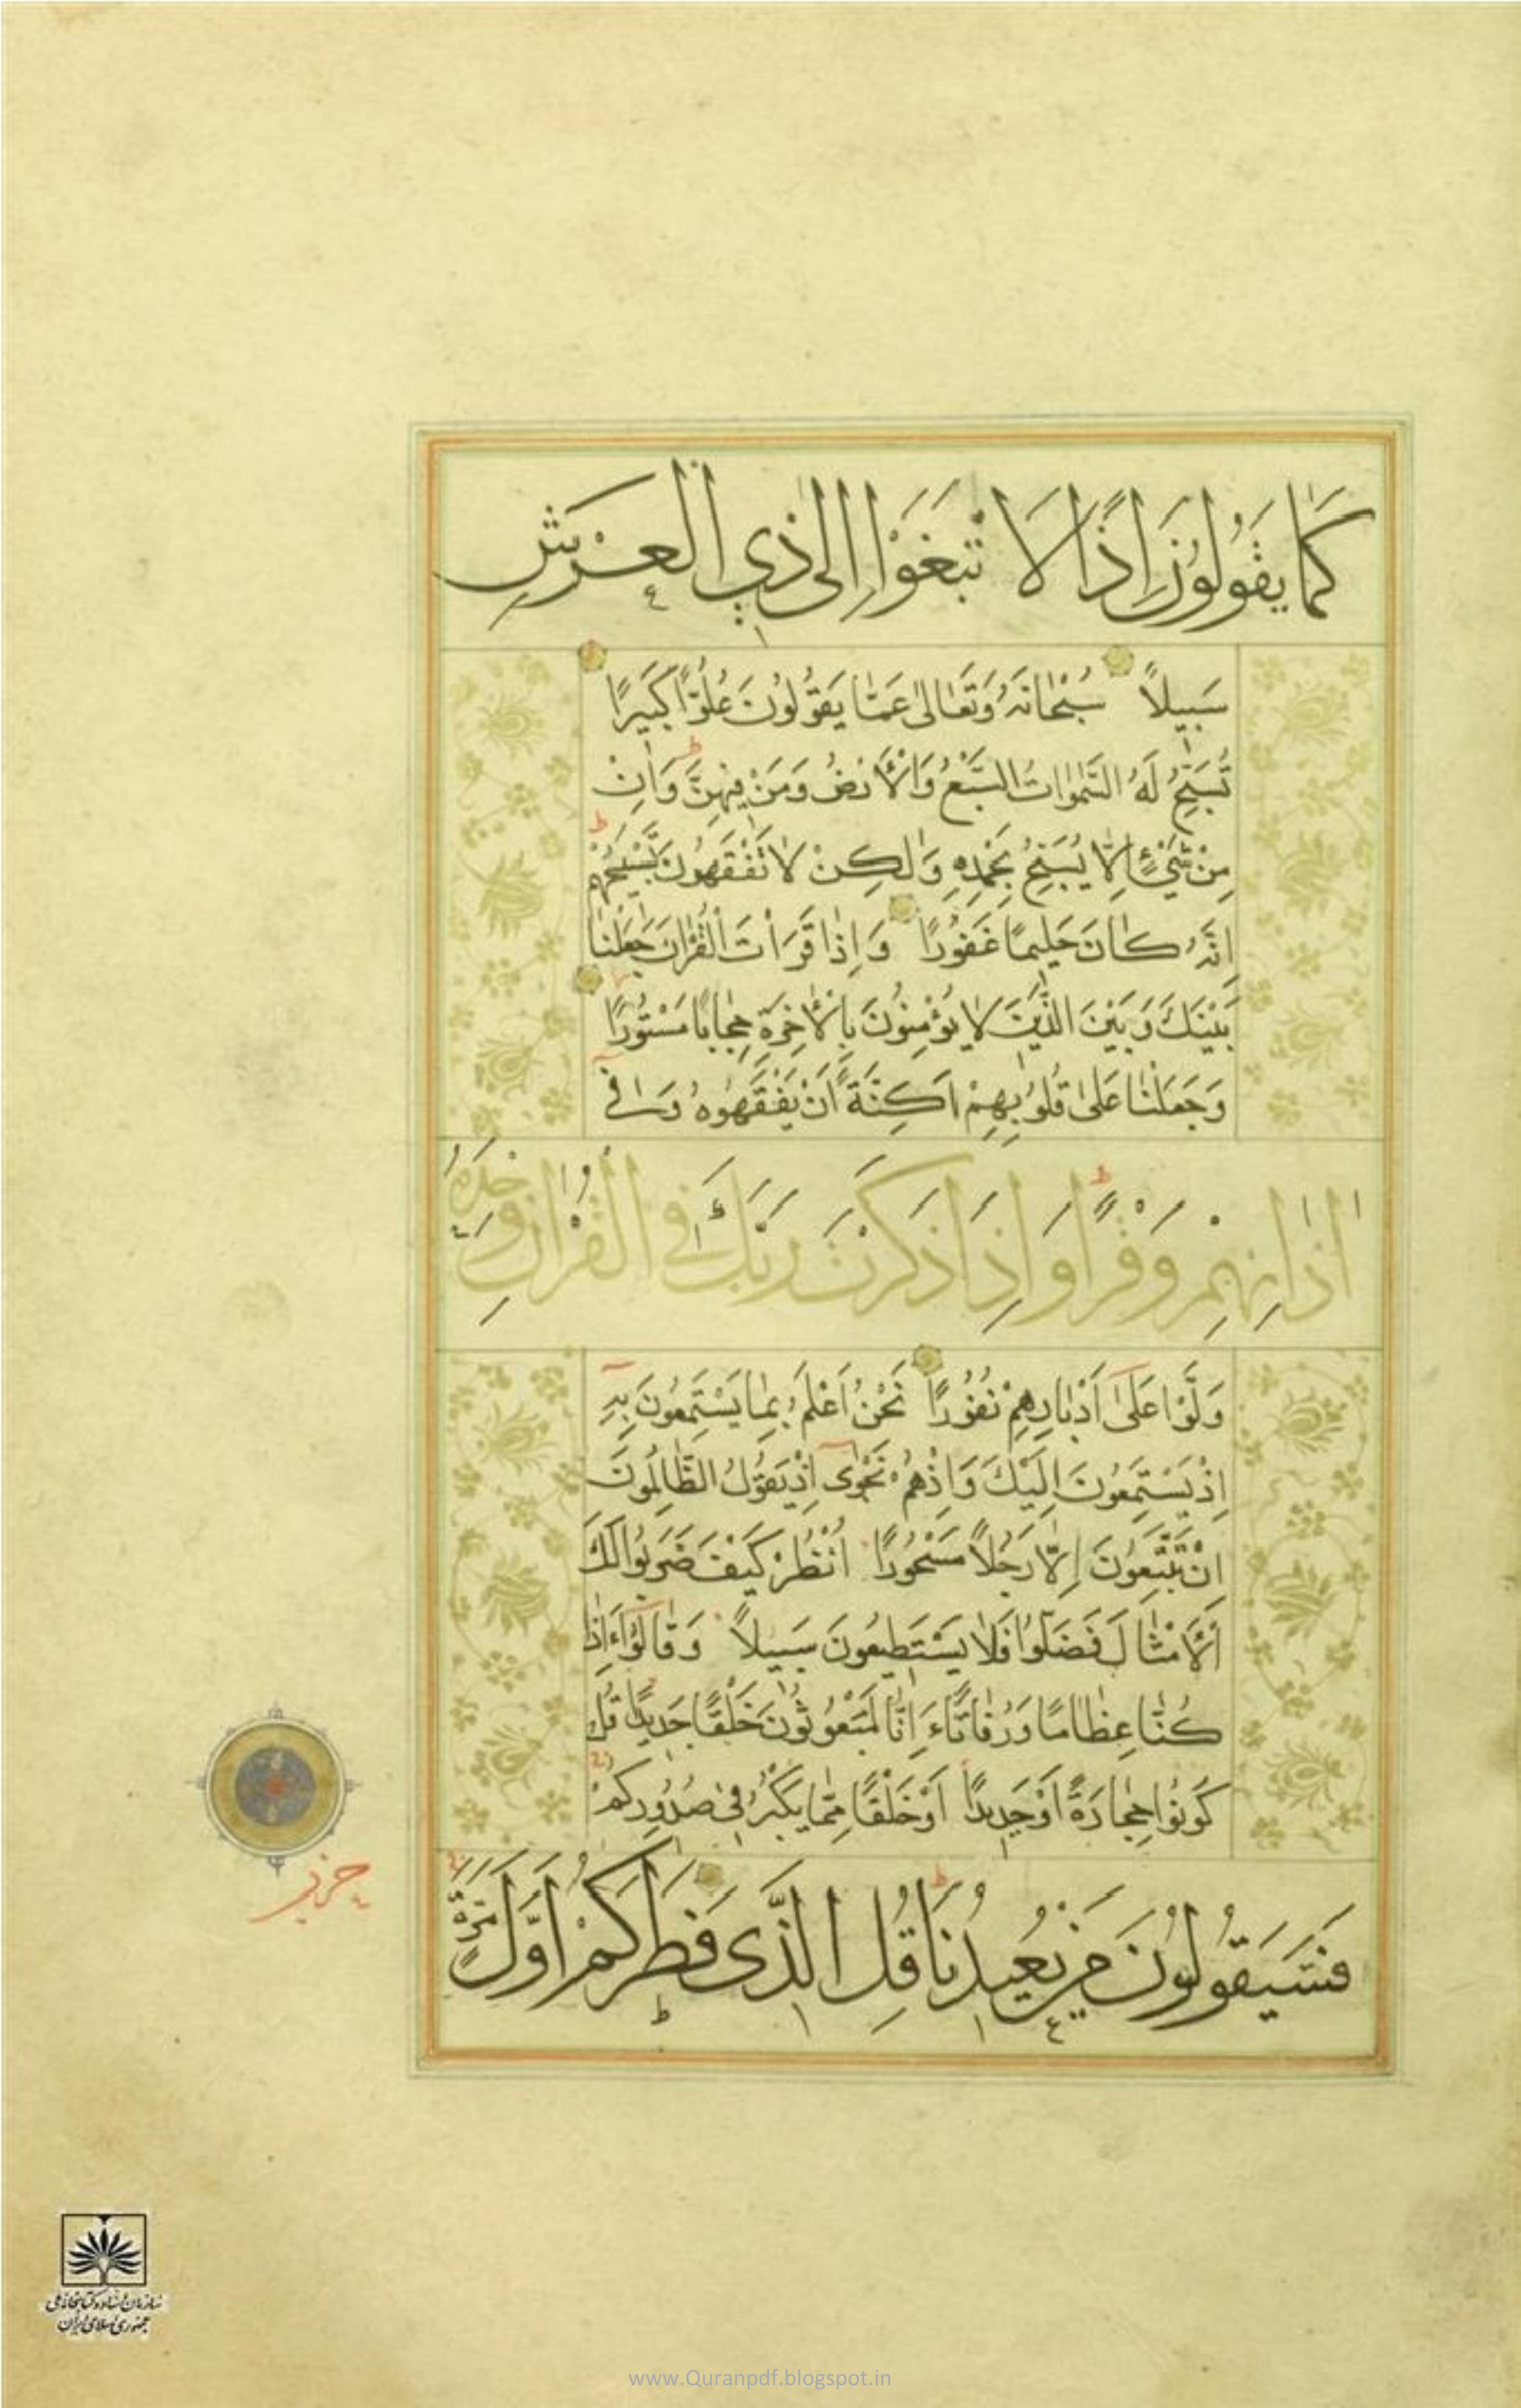 كَمَا يَقُولُونَ إِذًا لَا تَبْتَغَوْا إِلَىٰ ذِي الْعَرْشِ
سَبِيلًا سُبْحَانَهُ وَتَعَالَىٰ عَمَّا يَقُولُونَ عُلُوًّا كَبِيرًا
تُسَبِّحُ لَهُ السَّمٰوَاتُ السَّبْعُ وَالْأَرْضُ وَمَنْ فِيهِنَّ وَاِنْ
مِنْ شَيْءٍ اِلَّا يُسَبِّحُ بِحَمْدِهِ وَلٰكِنْ لَا تَفْقَهُونَ تَسْبِيحَهُمْ
اِنَّهُ كَانَ حَلِيمًا غَفُورًا وَاِذَا قَرَأْتَ الْقُرْاٰنَ جَعَلْنَا
بَيْنَكَ وَبَيْنَ الَّذِينَ لَا يُؤْمِنُونَ بِالْاٰخِرَةِ حِجَابًا مَسْتُورًا
وَجَعَلْنَا عَلَىٰ قُلُوبِهِمْ اَكِنَّةً اَنْ يَفْقَهُوهُ وَفِي
اٰذَانِهِمْ وَقْرًا وَاِذَا ذَكَرْتَ رَبَّكَ فِي الْقُرْاٰنِ وَحْدَهُ
وَلَّوْا عَلَىٰ اَدْبَارِهِمْ نُفُورًا نَحْنُ اَعْلَمُ بِمَا يَسْتَمِعُونَ بِهِ
اِذْ يَسْتَمِعُونَ اِلَيْكَ وَاِذْ هُمْ نَجْوَىٰ اِذْ يَقُولُ الظَّالِمُونَ
اِنْ تَتَّبِعُونَ اِلَّا رَجُلًا مَسْحُورًا اُنْظُرْ كَيْفَ ضَرَبُوا لَكَ
الْاَمْثَالَ فَضَلُّوا فَلَا يَسْتَطِيعُونَ سَبِيلًا وَقَالُوا ءَاِذَا
كُنَّا عِظَامًا وَرُفَاتًا ءَاِنَّا لَمَبْعُوثُونَ خَلْقًا جَدِيدًا قُلْ
كُونُوا حِجَارَةً اَوْ حَدِيدًا اَوْ خَلْقًا مِمَّا يَكْبُرُ فِي صُدُورِكُمْ
فَسَيَقُولُونَ مَنْ يُعِيدُنَا قُلِ الَّذِي فَطَرَكُمْ اَوَّلَ مَرَّةٍ
حزب
سازمان اسناد و کتابخانه ملی
جمهوری اسلامی ایران
www.Quranpdf.blogspot.in